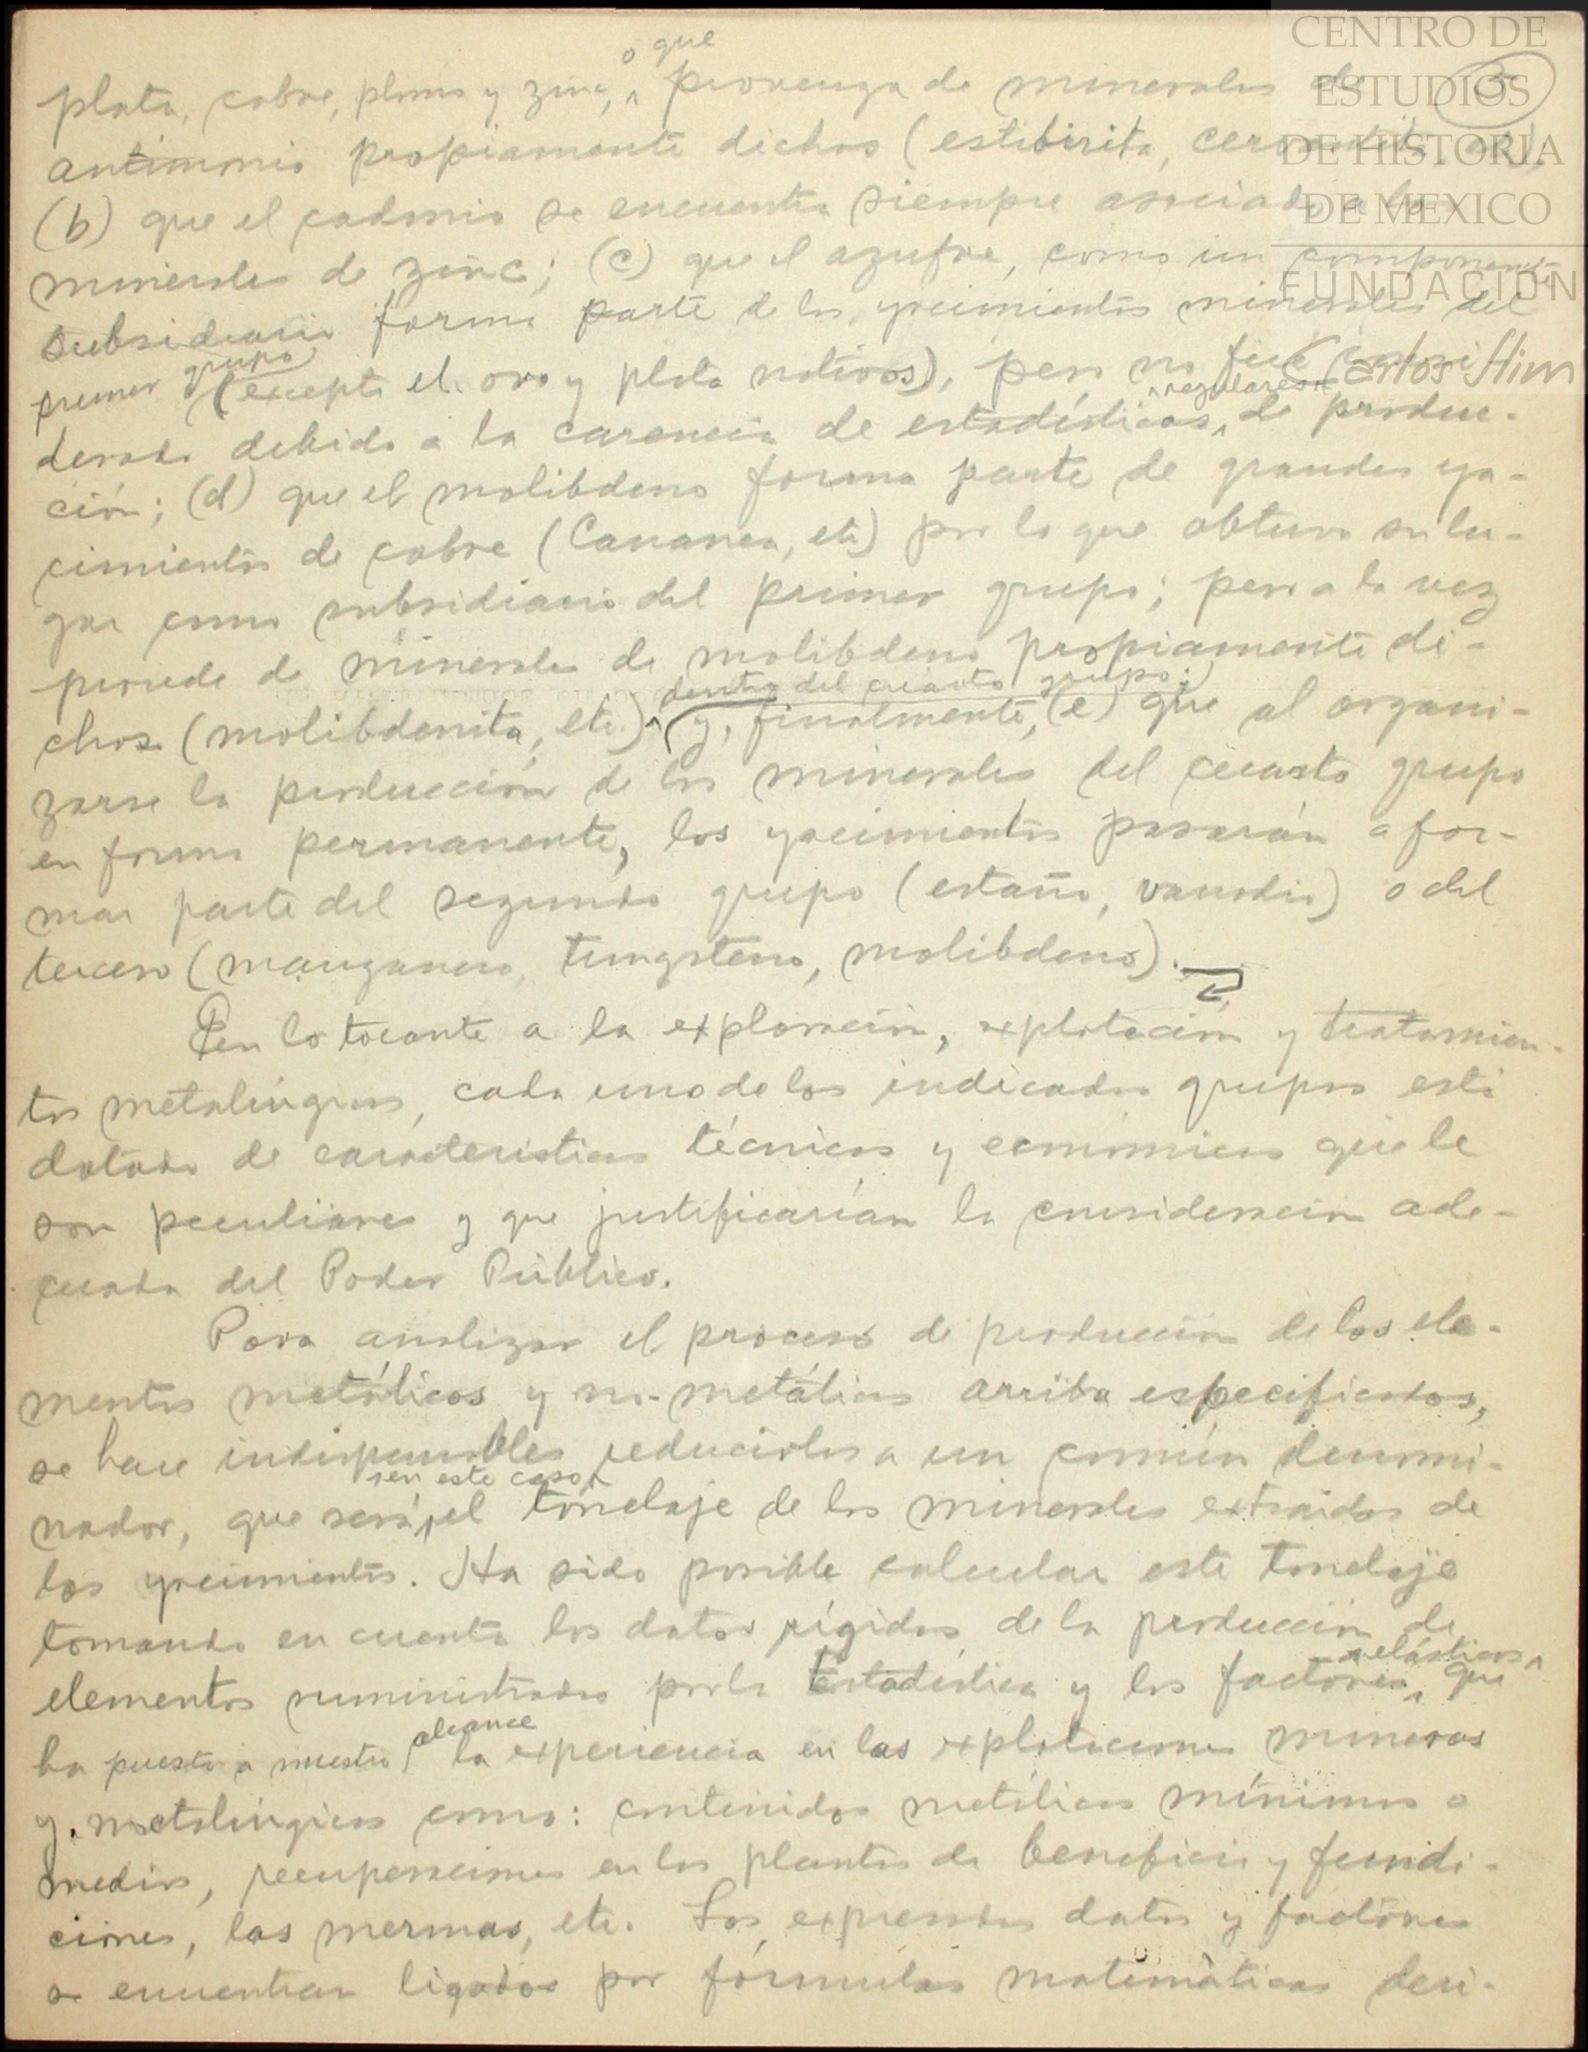 plata, cobre, plomo y zinc, o que provenga de minerales de 3
antimonio propiamente dichos (estibinita, cervantita, etc.),
(b) que el cadmio se encuentra siempre asociado a los
minerales de zinc; (c) que el azufre, como un componente
subsidiario forma parte de los yacimientos minerales del
primer grupo (excepto el oro y plata nativos), pero no fué consi-
derado debido a la carencia de estadísticas regulares de produc-
ción; (d) que el molibdeno forma parte de grandes ya-
cimientos de cobre (Cananea, etc) por lo que obtuvo su lu-
gar como subsidiario del primer grupo; pero a la vez
procede de minerales de molibdeno propiamente di-
chos (molibdenita, etc.) dentro del cuarto grupo; y, finalmente, (e) que al organi-
zarse la producción de los minerales del cuarto grupo
en forma permanente, los yacimientos pasarán a for-
mar parte del segundo grupo (estaño, vanadio) o del
tercero (manganeso, tungsteno, molibdeno).
En lo tocante a la exploración, explotación y tratamien-
tos metalúrgicos, cada uno de los indicados grupos está
dotado de características técnicas y económicas que le
son peculiares y que justificarían la consideración ade-
cuada del Poder Público.
Para analizar el proceso de producción de los ele-
mentos metálicos y no-metálicos arriba especificados,
se hace indispensables reducirlos a un común denomi-
nador, que será, en este caso, el tonelaje de los minerales extraidos de
los yacimientos. Ha sido posible calcular este tonelaje
tomando en cuenta los datos rígidos de la producción de
elementos suministrados por la Estadística y los factores elásticos que
ha puesto a nuestro alcance la experiencia en las explotaciones mineras
y metalúrgicas como: contenidos metálicos mínimos o
medios, recuperaciones en las plantas de beneficio y fundi-
ciones, las mermas, etc. Los expresados datos y factores
se encuentran ligados por fórmulas matemáticas deri-
CENTRO DE
ESTUDIOS
DE HISTORIA
DE MEXICO
FUNDACIÓN
Carlos Slim